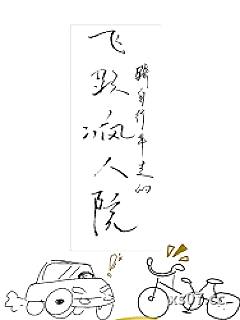 飞跃疯人院
骑自行车走的